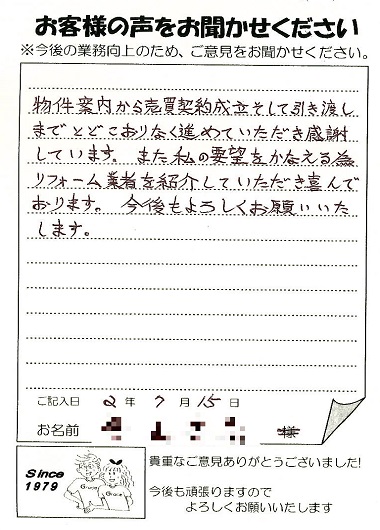 お客様の声をお聞かせください
※今後の業務向上のため、ご意見をお聞かせください。
物件案内から売買契約成立そして引き渡し
までとどこおりなく進めていただき感謝
しています。また私の要望をかなえる為
リフォーム業者を紹介していただき喜んで
おります。今後もよろしくお願いいた
します。
ご記入日 2年7月15日
お名前 様
Since
1979
Grace
Grace
貴重なご意見ありがとうございました!
今後も頑張りますので
よろしくお願いいたします